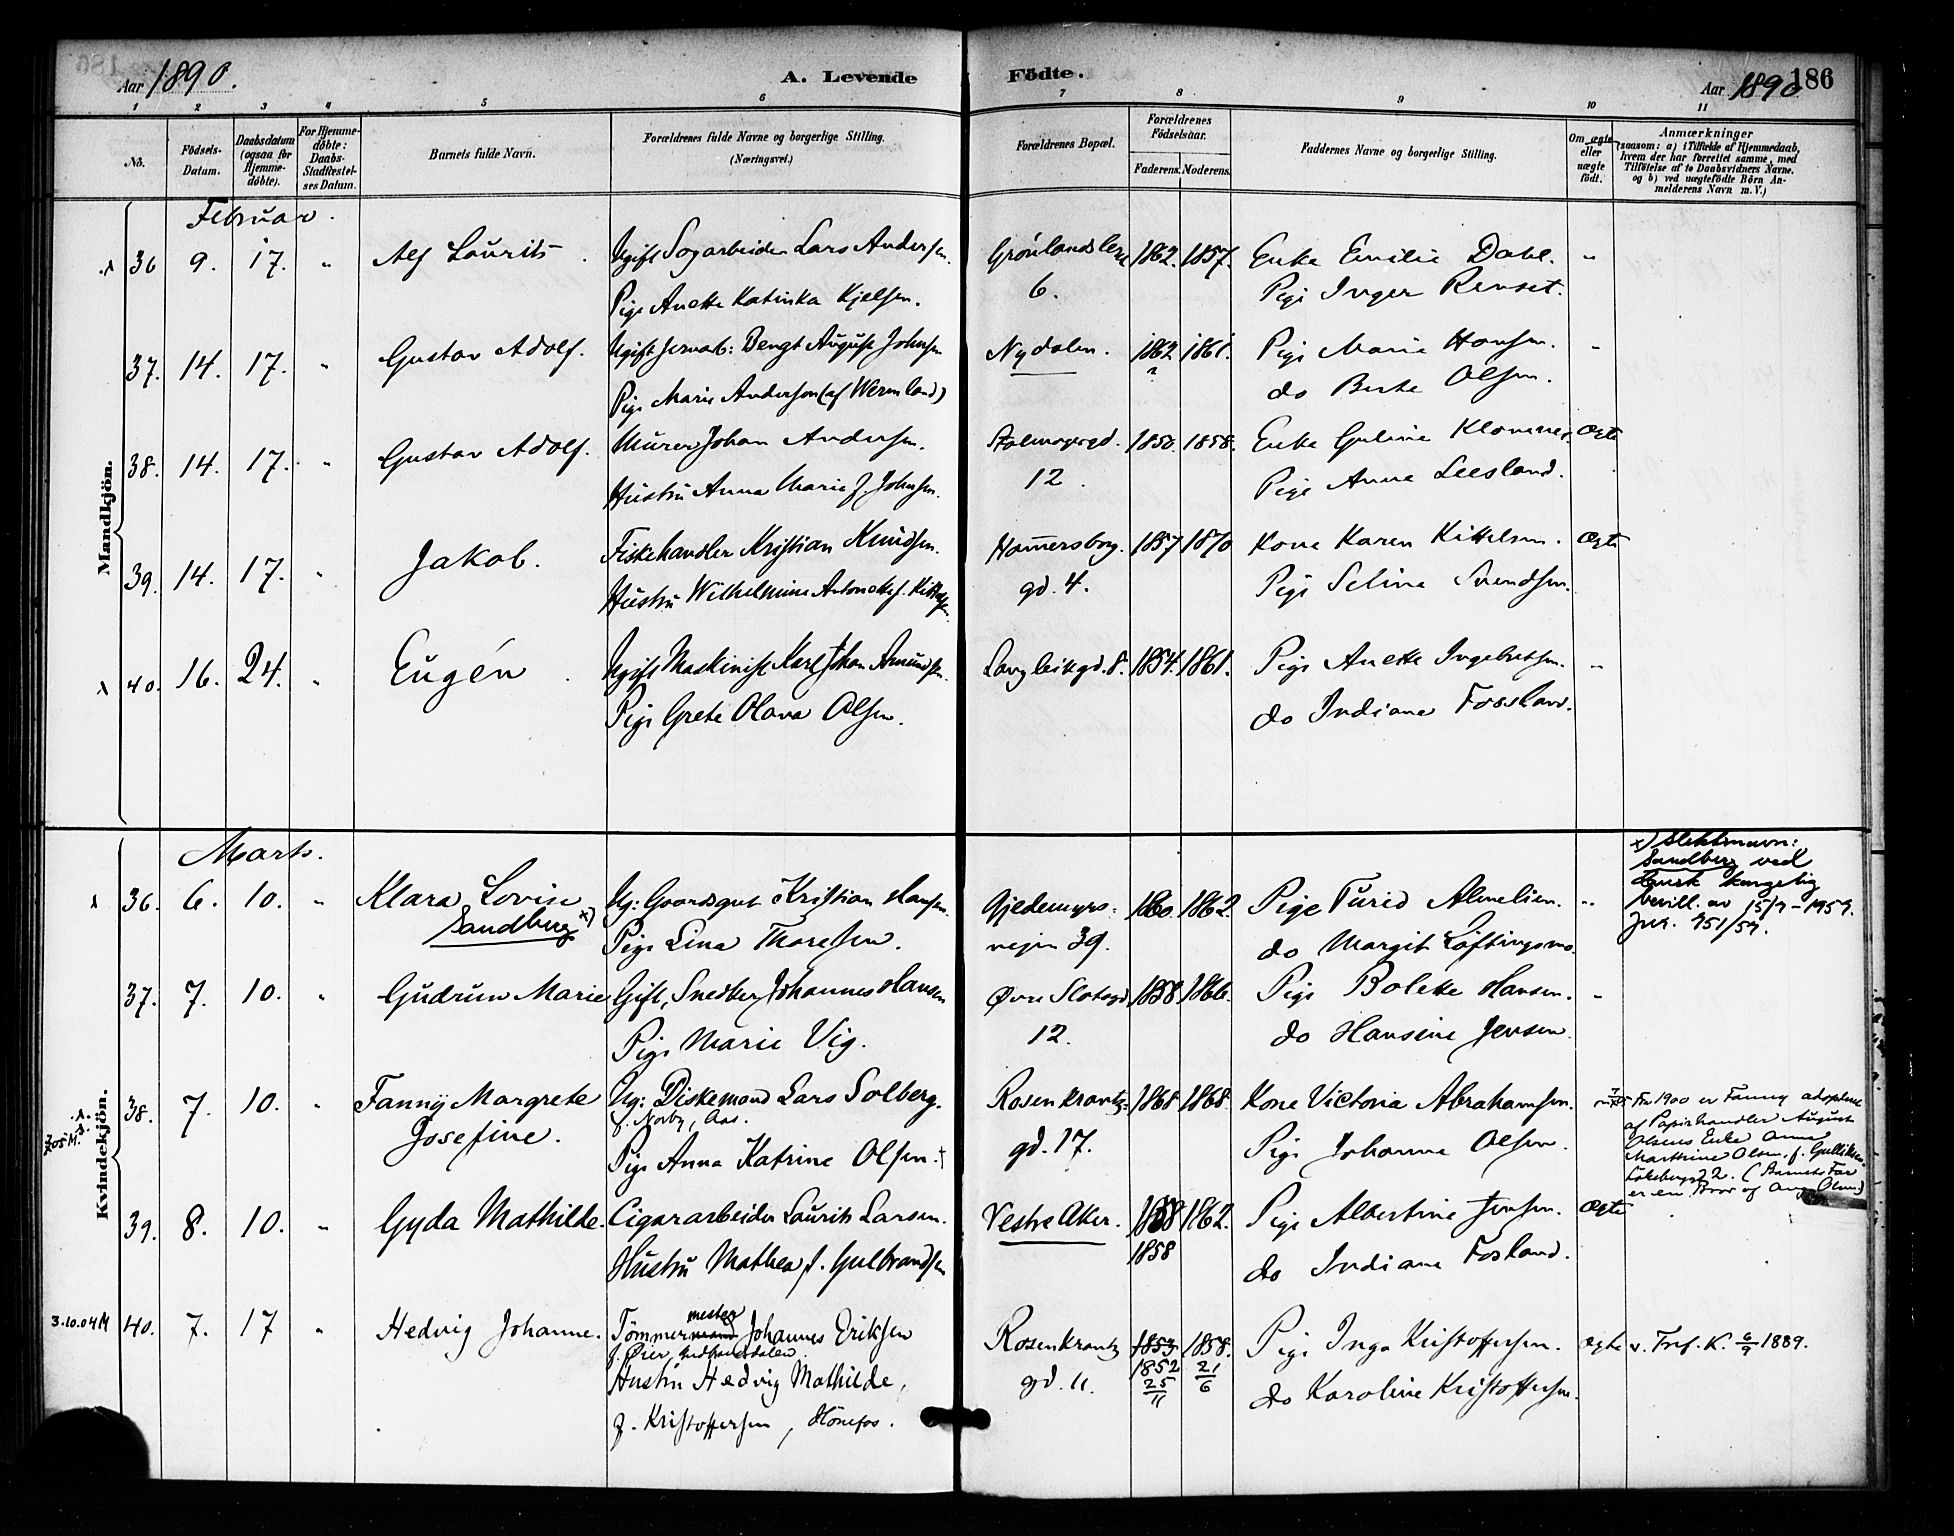 Aar 1890. A. Levende Födte. Aar 1890 186
1 2 3 4 5 6 7 8 9 10 11
No. Födsels-Datum. Daabsdatum (ogsaa for Hjemme-döbte). For Hjemme-döbte: Daabs-Stadfæstel-ses Datum. Barnets fulde Navn. Forældrenes fulde Navne og borgerlige Stilling. (Næringsvei.) Forældrenes Bopæl. Forældrenes Födselsaar. Faderens. Moderens. Faddernes Navne og borgerlige Stilling. Om ægte eller uægte födt. Anmærkninger (saasom: a) i Tilfælde af Hjemmedaab, hvem der har forrettet samme, med Tilföielse af to Daabsvidners Navne, og b) ved uægtefödte Börn An-melderens Navn m. V.)
Mandkjön.
Februar.
36 9. 17. " Alf Laurits Ugift Sagarbeider Lars Andersen. Grønlandsleret 1862. 1857. Enke Emilie Dahl. "
Pige Anette Katinka Kjelsen. 6. Pige Inger Renset.
37. 14. 17. " Gustav Adolf. Ugift Jernarb: Bengt August Johnsen Nydalen. 1862 1861. Pige Marie Hansen. "
Pige Marie Andersen (af Wermland) ? do Berte Olsen.
38. 14. 17. " Gustav Adolf. Murer Johan Andersen. 1850. 1858. Enke Guline Ægte
Hustru Anna Marie f. Johnsen. 12. Pige Anna
39. 14. 17. " Jakob. Fiskehandler Kristian Knudsen. Hammersborg. 1857 1870 Kone Karen Kittelsen. Ægte
Hustru Wilhelmine Antonette f. Kittelsen. gd. 4. Pige Selina Svendsen.
40. 16. 24. " Eugén Ugift Maskinist Karl Johan Amundsen. Langleikgd. 8. 1854. 1861. Pige Anette Ingebretsen. "
Pige Grete Olava Olsen. do Indiana Fossland.
Kvindekjön.
Marts.
36. 6. 10. " Klara Lovise Ug: Gaardsgut Kristian Hansen. Gjedemyrs- 1860. 1862. Pige Turid "
Sandberg x) Pige Lina Thoresen. veien 39. do Margit Löftingsmo.
x) slektsnavn:
Sandberg ved
kongelig
bevill. av 15/9-1959.
Jnr. 951/59.
37. 7. 10. " Gudrun Marie Gift, Snedker Johannes Hansen Øvre Slotsgd 1858. 1866. Pige Bolette Hansen. "
Pige Marie Vig. 12. do Hansine Jensen.
38. 7. 10. " Fanny Margrete Ug: Diskemand Lars Solberg. Rosenkrantz- 1868 1868. Kone Victoria Abrahamsen.
f. Norby, Aas.
Josefine. Pige Anna Katrine Olsen. gd. 17. Pige Johanne Olsen.
1900 er Fanny adopteret
af Papirhandler August
Olsens Enke Anna
Marthine Olsen, f. Gulliksen.
(Barnets Far
er en Bror af Aug. Olsen)
39. 8. 10. " Gyda Mathilde. Cigararbeider Laurits Larsen. Vestre Aker. 1862. Pige Albertine Jensen. Ægte
Hustru Mathea, f. Gulbrandsen 1858 do Indiana Fosland.
3.10.04 M 40. 7. 17 " Hedvig Johanne. Tömmermand mester Johannes Eriksen Rosenkrantz 1853 1858. Pige Inga Kristoffersen. Ægte v. Tref. K. 6/9 1889.
f. Øier, Gudbrandsdalen. 1852 21/6
Hustru Hedvig Mathilde, gd. 11. 25/11 do Karoline Kristoffersen.
f. Kristoffersen, Hönefos.